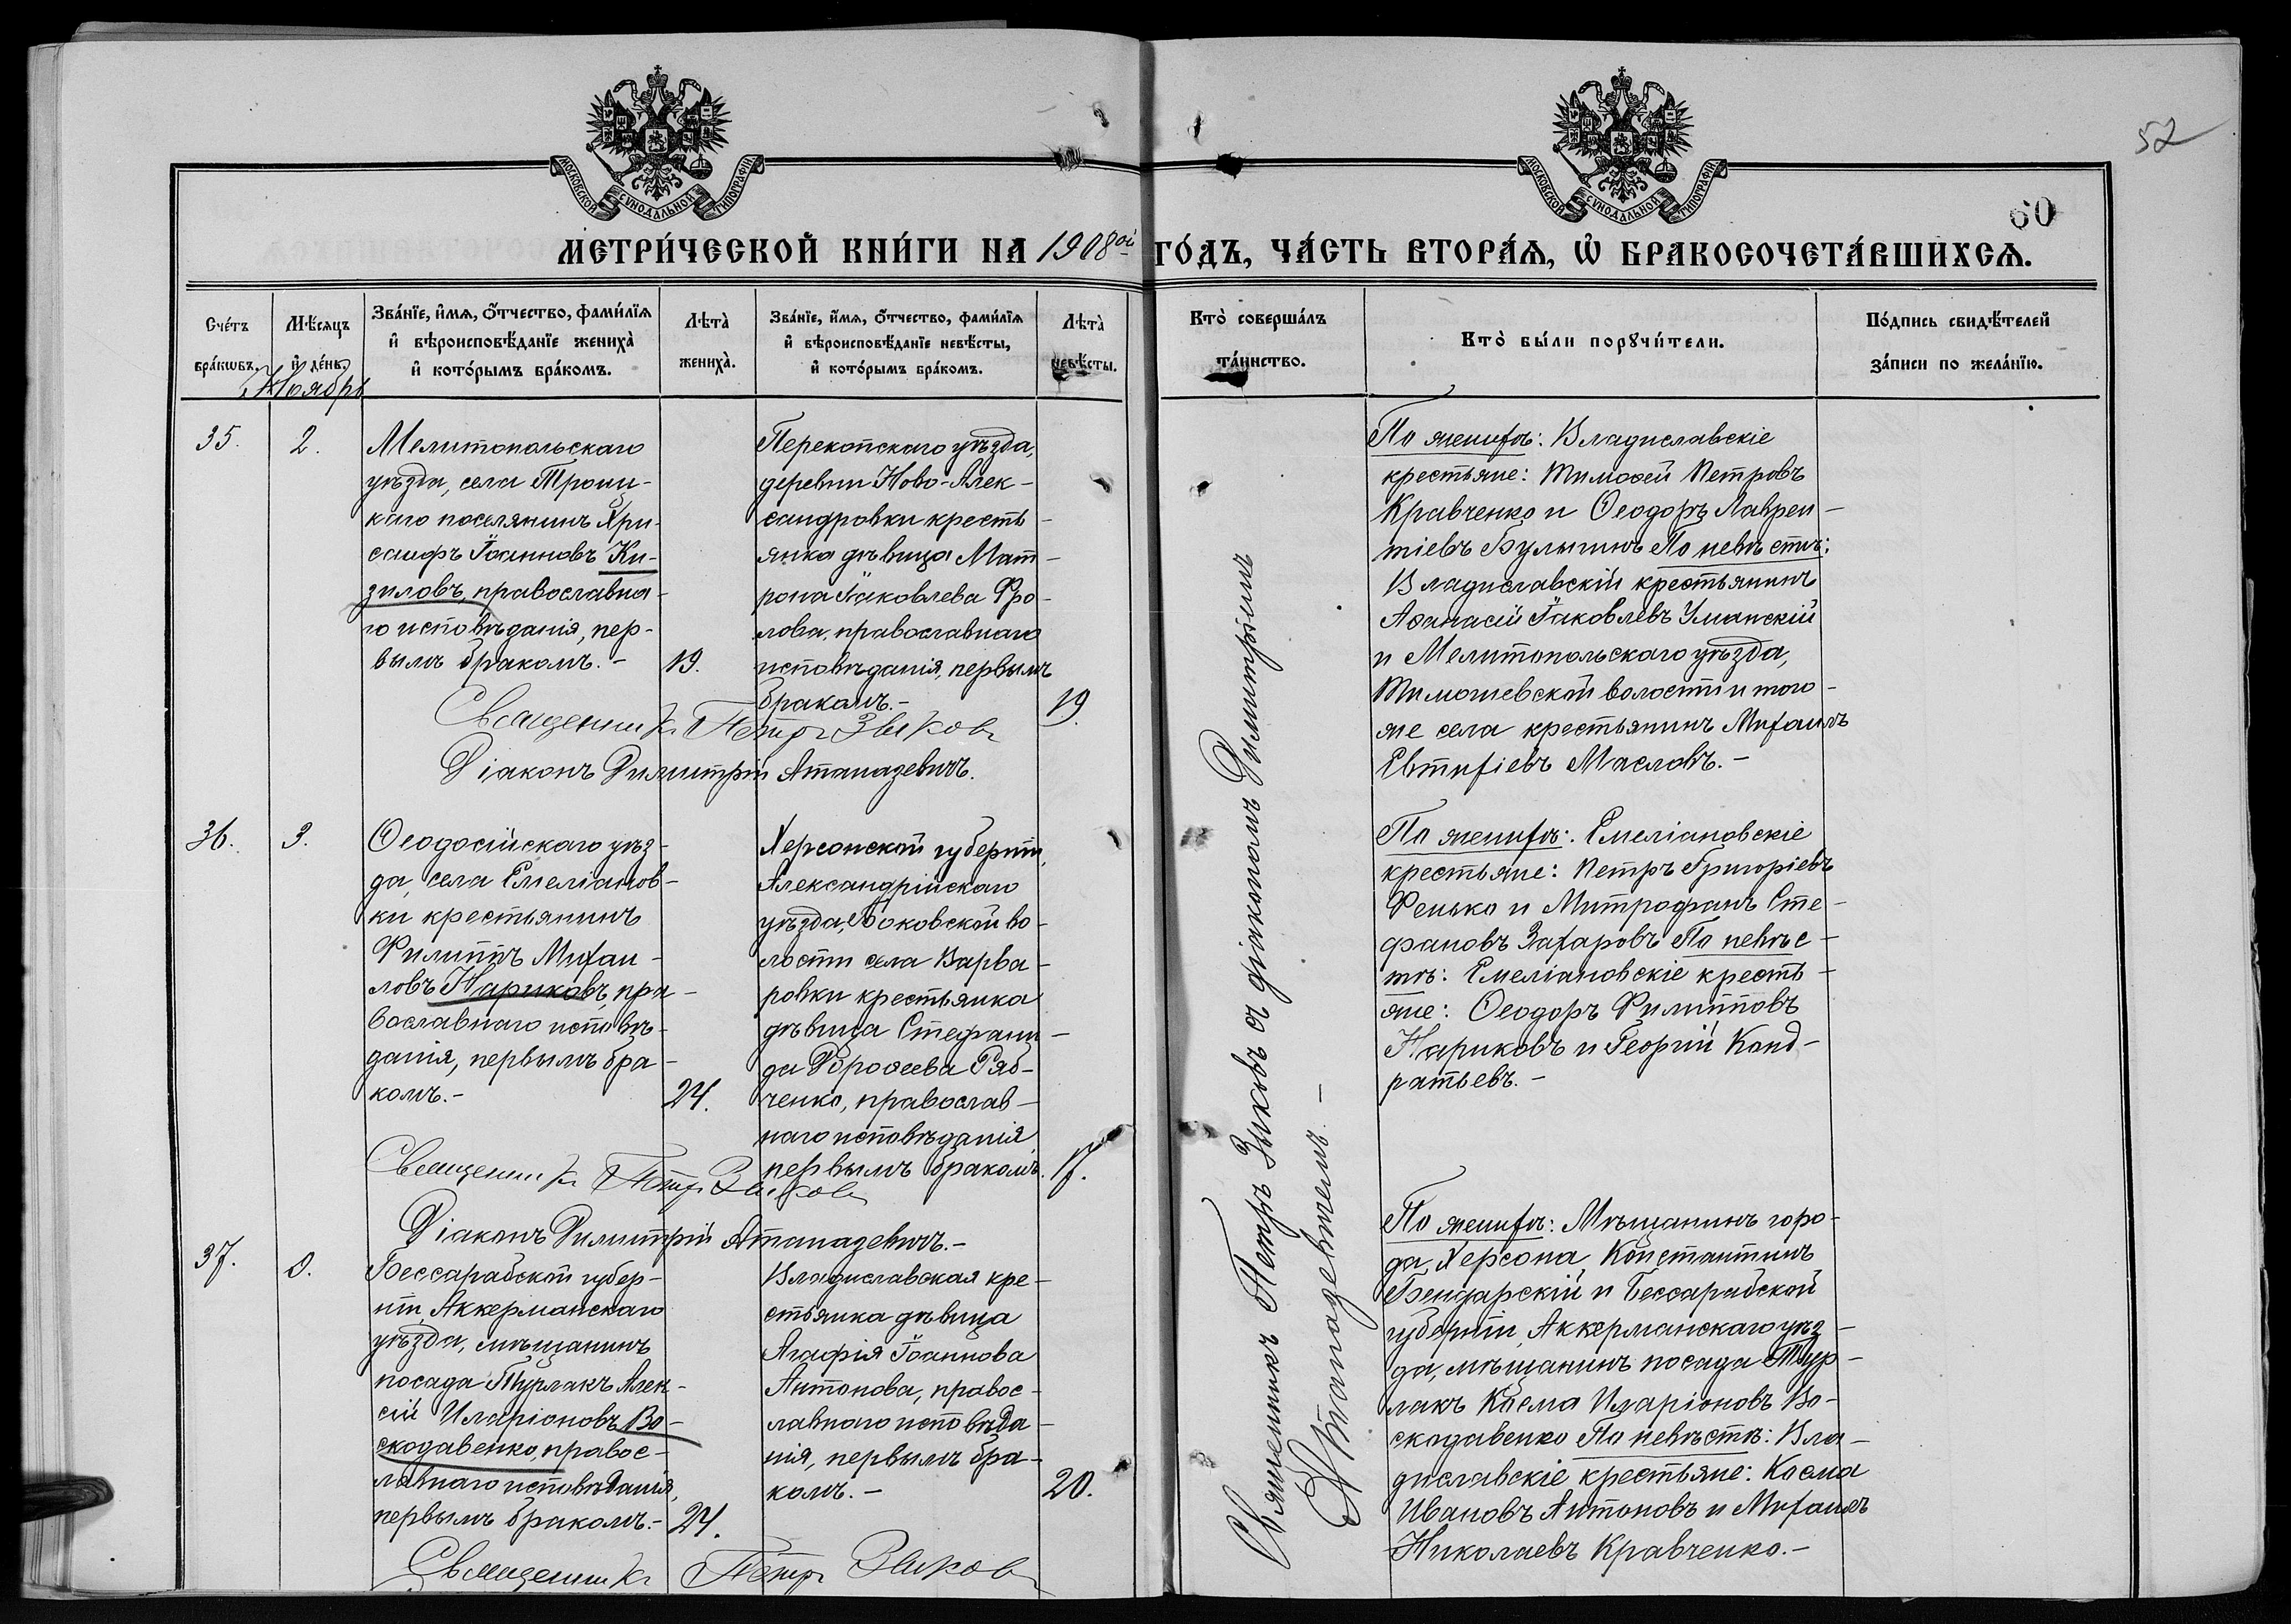 52
60
МОСКОВСКОЙ СѴНОДАЛЬНОЙ ТИПОГРАФІИ
МОСКОВСКОЙ СѴНОДАЛЬНОЙ ТИПОГРАФІИ
МЕТРИ́ЧЕСКОЙ КНИ́ГИ НА 1908ой ГО́ДЪ, ЧА́СТЬ ВТОРА́Ѧ, Ѽ БРАКОСОЧЕТА́ВШИХСѦ.
Сче́тъ бра́кѡвъ.
Мѣ́сяцъ и де́нь.
Зва́нїе, и́мѧ, о́тчество, фами́лїѧ
и вѣроисповѣ́данїе жениха̀
и кото́рымъ бра́комъ.
Лѣта̀ жениха̀.
Зва́нїе, и́мѧ, о́тчество, фами́лїѧ
и вѣроисповѣ́данїе невѣ́сты,
и кото́рымъ бра́комъ.
Лѣта̀ невѣ́сты.
Кто̀ соверша́лъ та́инство.
Кто̀ бы́ли порꙋчи́тели.
По́дпись свидѣ́телей за́писи по жела́нїю.
Ноябрь
35.
2.
Мелитопольскаго
уѣзда, села Троиц-
каго поселянинъ Хри-
санфъ Іоанновъ Ки-
зиловъ, православна-
го исповѣданія, пер-
вымъ бракомъ.-
19.
Перекопскаго уѣзда,
деревни Ново-Алек-
сандровки кресть-
янка дѣвица Мат-
рона Іаковлева Фро-
лова, православнаго
исповѣданія, первымъ
бракомъ.-
19.
Священникъ Петръ Зыковъ
Діаконъ Димитрій Атаназевичъ.
По женихѣ: Владиславскіе
крестьяне: Тимоѳей Петровъ
Кравченко и Ѳеодоръ Лаврен-
тіевъ Булыгинъ По невѣстѣ:
Владиславскій крестьянинъ
Аѳанасій Іаковлевъ Уманскій
и Мелитопольскаго уѣзда,
Тимошевской волости и того-
же села крестьянинъ Михаилъ
Евтихіевъ Масловъ.-
36.
3.
Ѳеодосійскаго уѣз-
да, села Емеліанов-
ки крестьянинъ
Филиппъ Михаи-
ловъ Нариковъ, пра-
вославнаго исповѣ-
данія, первымъ бра-
комъ.-
24.
Херсонской губерніи,
Александрійскаго
уѣзда, Боковской во-
лости села Варва-
ровки крестьянка
дѣвица Стефани-
да Дороѳеева Ряб-
ченко, православ-
наго исповѣданія
первымъ бракомъ.
17.
Священникъ Петръ Зыковъ
Діаконъ Димитрій Атаназевичъ.-
По женихѣ: Емеліановскіе
крестьяне: Петръ Григоріевъ
Фенько и Митрофанъ Сте-
фановъ Захаровъ По невѣс-
тѣ: Емеліановскіе кресть-
яне: Ѳеодоръ Филипповъ
Нариковъ и Георгій Конд-
ратьевъ.-
37.
8.
Бессарабской губер-
ніи, Аккерманскаго
уѣзда, мѣщанинъ
посада Турлакъ Алек-
сій Иларіоновъ Во-
скодавенко, правос-
лавнаго исповѣданія,
первымъ бракомъ.-
24.
Владиславская кре-
стьянка дѣвица
Агафія Іоаннова
Антонова, правос-
лавнаго исповѣда-
нія, первымъ бра-
комъ.-
20.
Священникъ Петръ Зыковъ
По женихѣ: Мѣщанинъ горо-
да Херсона, Константинъ
Бендарскій и Бессарабской
губерніи, Аккерманскаго уѣз-
да, мѣщанинъ посада Тур-
лакъ Косма Иларіоновъ Во-
скодавенко По невѣстѣ: Вла-
диславскіе крестьяне: Косма
Ивановъ Антоновъ и Михаилъ
Николаевъ Кравченко.-
Священникъ Петръ Зыковъ съ діакономъ Димитріемъ
Атаназевичемъ.-